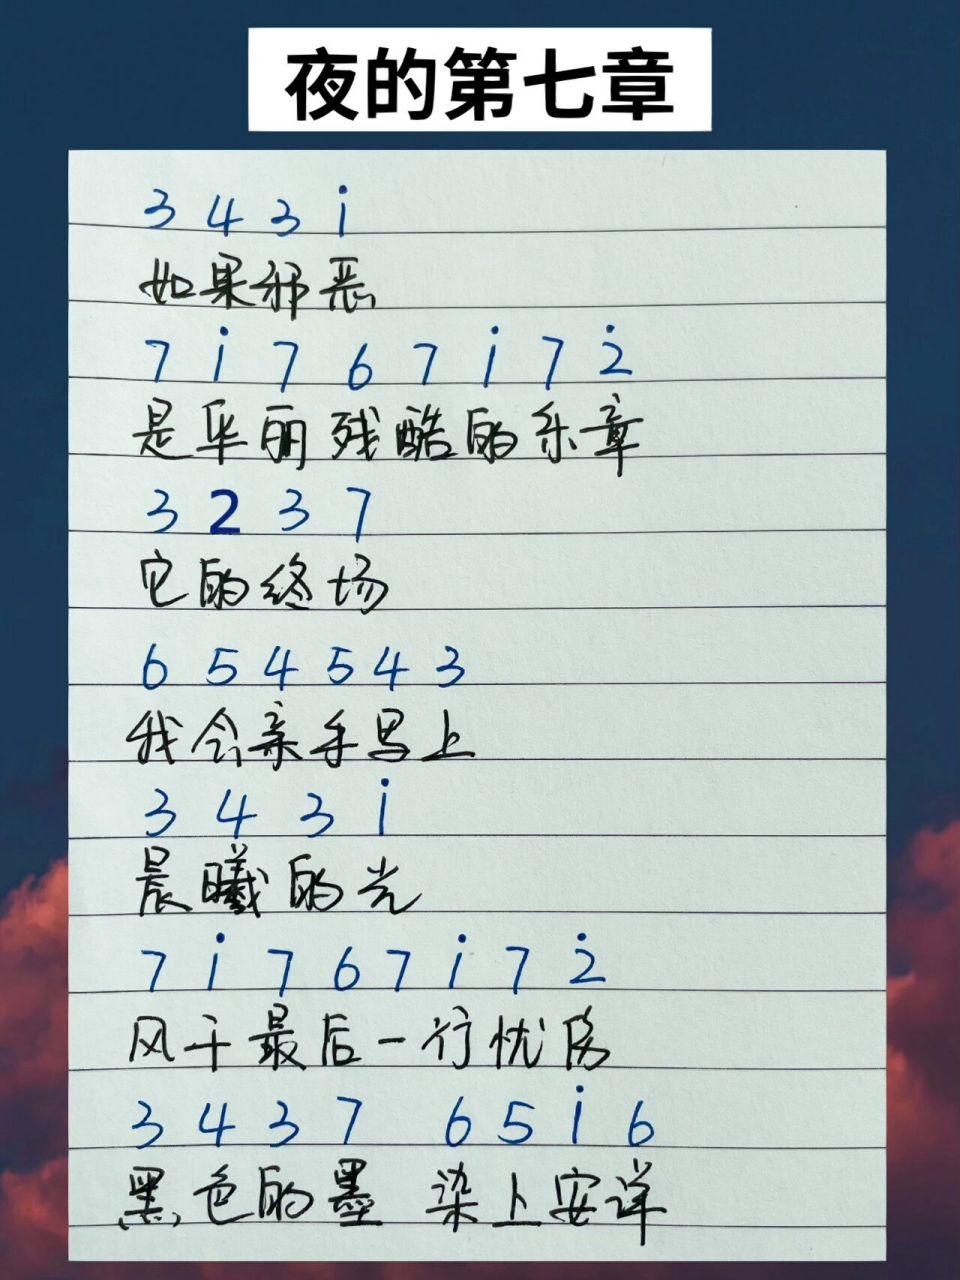 夜的第七章
3 4 3 i
如果邪恶
7 i 7 6 7 i 7 2̇
是华丽残酷的乐章
3 2 3 7
它的终场
6 5 4 5 4 3
我会亲手写上
3 4 3 i
晨曦的光
7 i 7 6 7 i 7 2̇
风干最后一行忧伤
3 4 3 7 6 5 i 6
黑色的墨 染上安详